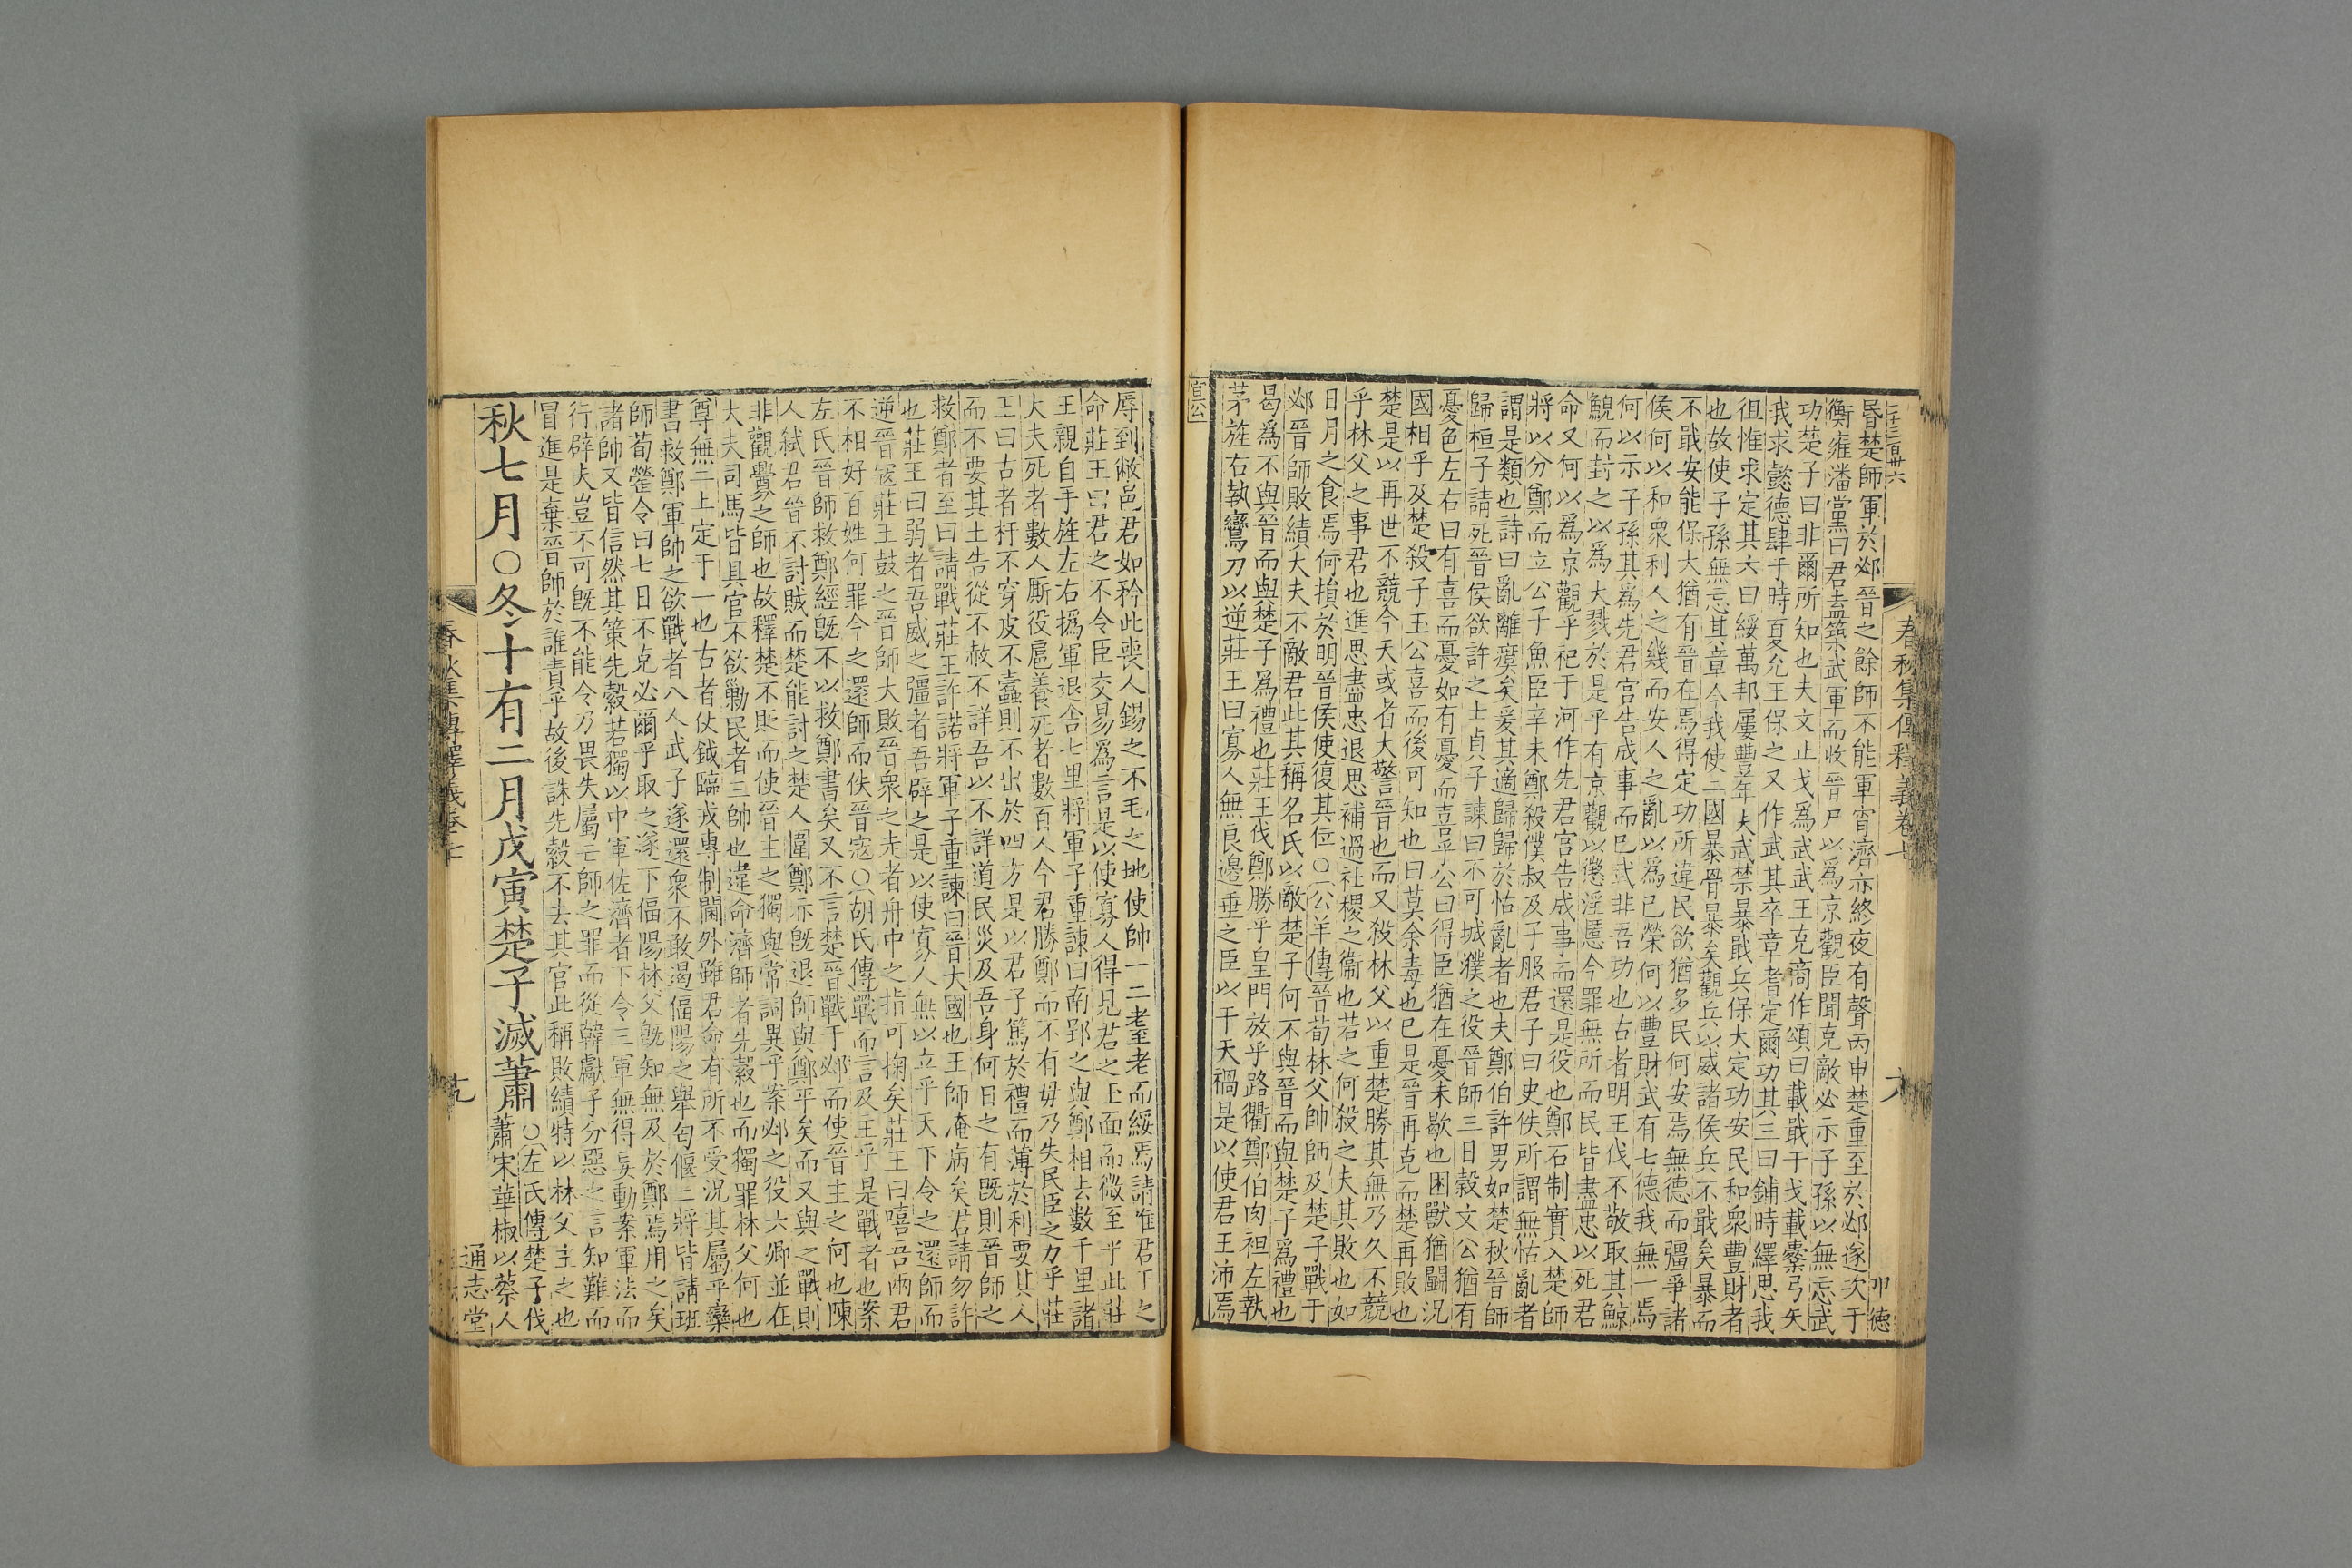 春秋集傳釋義卷七
昏楚師軍於邲晉之餘師不能軍宵濟亦終夜有聲丙申楚重至於邲遂次于
衡雍潘黨曰君盍築武軍而收晉尸以為京觀臣聞克敵必示子孫以無忘武
功楚子曰非爾所知也夫文止戈為武武王克商作頌曰載戢干戈載櫜弓矢
我求懿德肆于時夏允王保之又作武其卒章耆定爾功其三曰鋪時繹思我
徂惟求定其六曰綏萬邦屢豐年夫武禁暴戢兵保大定功安民和衆豐財者
也故使子孫無忘其章今我使二國暴骨暴矣觀兵以威諸侯兵不戢矣暴而
不戢安能保大猶有晉在焉得定功所違民欲猶多民何安焉無德而彊爭諸
侯何以和衆利人之幾而安人之亂以為己榮何以豐財武有七德我無一焉
何以示子孫其為先君宮告成事而已武非吾功也古者明王伐不敬取其鯨
鯢而封之以為大戮於是乎有京觀以懲淫慝今罪無所而民皆盡忠以死君
命又何以為京觀乎祀于河作先君宮告成事而還是役也鄭石制實入楚師
將以分鄭而立公子魚臣辛未鄭殺僕叔及子服君子曰史佚所謂無怙亂者
謂是類也詩曰亂離瘼矣爰其適歸歸於怙亂者也夫鄭伯許男如楚秋晉師
歸桓子請死晉侯欲許之士貞子諫曰不可城濮之役晉師三日穀文公猶有
憂色左右曰有喜而憂如有憂而喜乎公曰得臣猶在憂未歇也困獸猶鬬況
國相乎及楚殺子玉公喜而後可知也曰莫余毒也已是晉再克而楚再敗也
楚是以再世不競今天或者大警晉也而又殺林父以重楚勝其無乃久不競
乎林父之事君也進思盡忠退思補過社稷之衞也若之何殺之夫其敗也如
日月之食焉何損於明晉侯使復其位○公羊傳晉荀林父帥師及楚子戰于
邲晉師敗績大夫不敵君此其稱名氏以敵楚子何不與晉而與楚子為禮也
曷為不與晉而與楚子為禮也莊王伐鄭勝乎皇門放乎路衢鄭伯肉袒左執
茅旌右執鸞刀以逆莊王曰寡人無良邊垂之臣以干天禍是以使君王沛焉
宣公
辱到敝邑君如矜此喪人錫之不毛之地使帥一二耋老而綏焉請唯君王之
命莊王曰君之不令臣交易為言是以使寡人得見君之玉面而微至乎此莊
王親自手旌左右撝軍退舍七里將軍子重諫曰南郢之與鄭相去數千里諸
大夫死者數人厮役扈養死者數百人今君勝鄭而不有毋乃失民臣之力乎莊
王曰古者杅不穿皮不蠹則不出於四方是以君子篤於禮而薄於利要其人
而不要其土告從不赦不詳吾以不詳道民災及吾身何日之有既則晉師之
救鄭者至曰請戰莊王許諾將軍子重諫曰晉大國也王師淹病矣君請勿許
也莊王曰弱者吾威之彊者吾辟之是以使寡人無以立乎天下令之還師而
逆晉寇莊王鼓之晉師大敗晉衆之走者舟中之指可掬矣莊王曰嘻吾兩君
不相好百姓何罪令之還師而佚晉寇○胡氏傳戰而言及主乎是戰者也案
左氏晉師救鄭經既不以救鄭書矣又不言楚晉戰于邲而使晉主之何也陳
人弑君晉不討賊而楚能討之楚人圍鄭亦既退師與鄭平矣而又與之戰則
非觀釁之師也故釋楚不貶而使晉主之獨與常詞異乎案邲之役六卿並在
大夫司馬皆具官不欲勦民者三帥也違命濟師者先縠也而獨罪林父何也
尊無二上定于一也古者仗鉞臨戎專制閫外雖君命有所不受況其屬乎欒
書救鄭軍帥之欲戰者八人武子遂還衆不敢遏偪陽之舉匄偃二將皆請班
師荀罃令曰七日不克必爾乎取之遂下偪陽林父既知無及於鄭焉用之矣
諸帥又皆信然其策先縠若獨以中軍佐濟者下令三軍無得妄動案軍法而
行辟夫豈不可既不能令乃畏失屬亡師之罪而從韓獻子分惡之言知難而
冒進是棄晉師於誰責乎故後誅先縠不去其官此稱敗績特以林父主之也
秋七月○冬十有二月戊寅楚子滅蕭○左氏傳楚子伐
蕭宋華椒以蔡人
通志堂